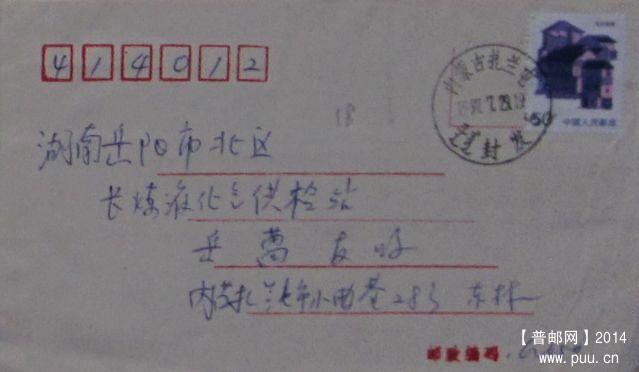 414012
内蒙古扎兰屯
50 中国人民邮政
封发
湖南岳阳市北区
长炼液化气供检站
岳嵩 友好
内蒙扎兰屯市小曲巷283 东林
邮政编码
【普邮网】2014
www.puu.cn